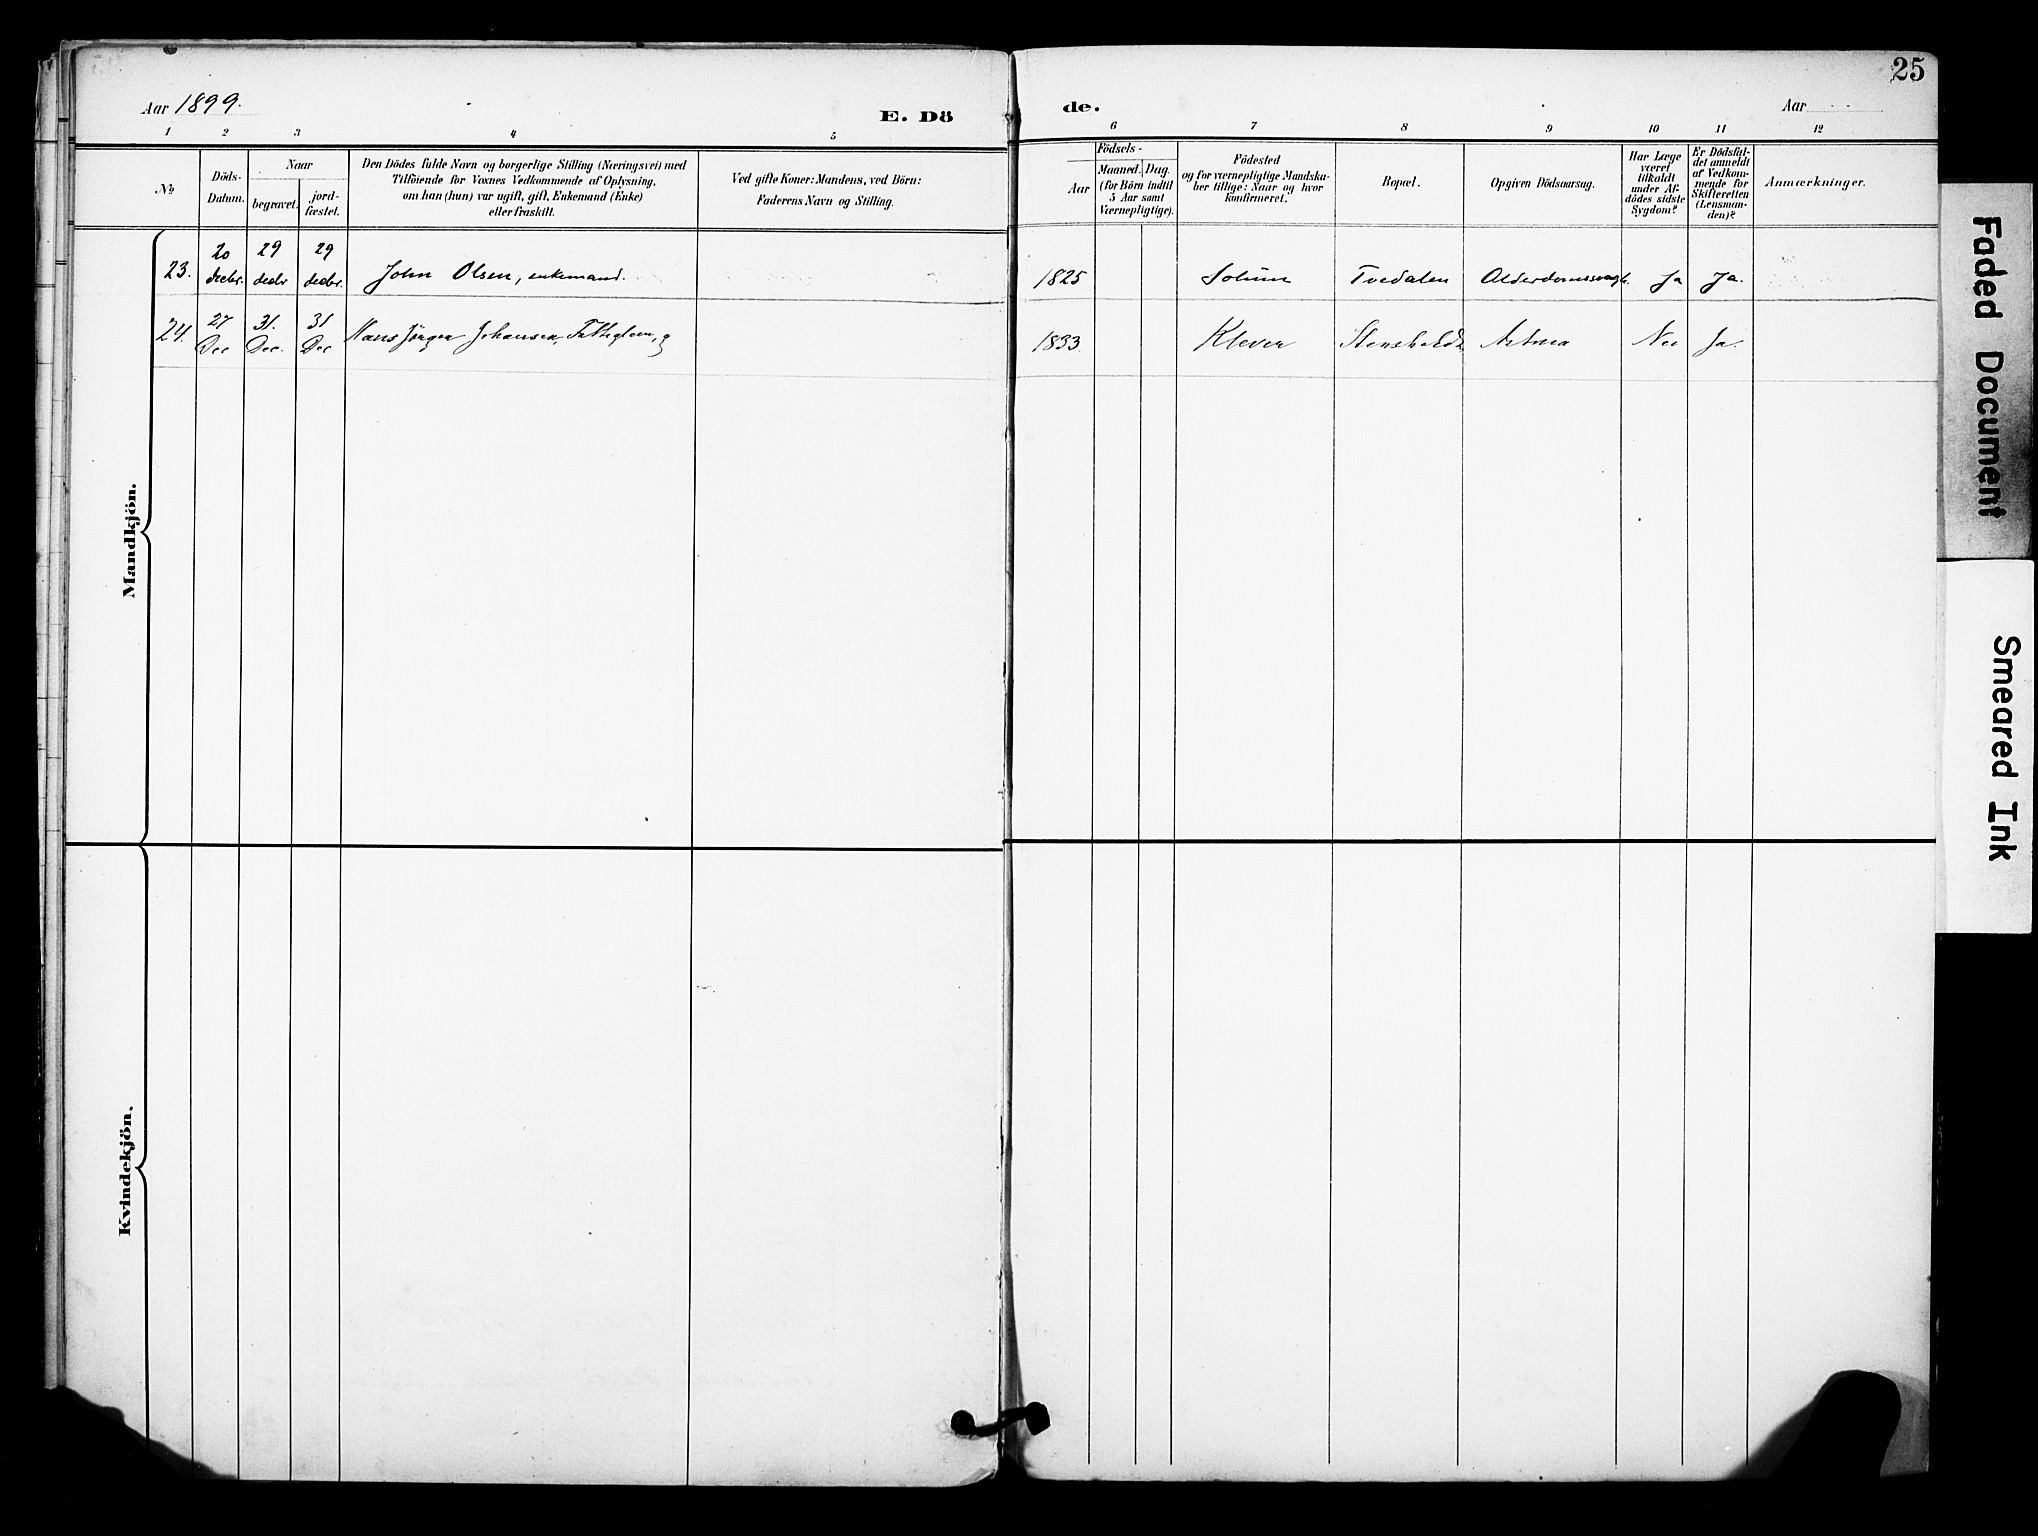 25
Aar 1899.
E. Dö
de.
Aar
1 2 3 4 5 6 7 8 9 10 11 12
No
Döds-
Datum.
Naar
begravet.
jord-
fæstet.
Den Dödes fulde Navn og borgerlige Stilling (Næringsvei) med
Tilföiende for Voxnes Vedkommende af Oplysning,
om han (hun) var ugift, gift, Enkemand (Enke)
eller fraskilt.
Ved gifte Koner: Mandens, ved Börn:
Faderens Navn og Stilling.
Födsels-
Aar
Maaned. Dag.
(for Börn indtil
5 Aar samt
Værnepligtige).
Födested
og for værnepligtige Mandska-
ber tillige: Naar og hvor
konfirmeret.
Bopæl.
Opgiven Dödsaarsag.
Har Læge
været
tilkaldt
under Af-
dödes sidste
Sygdom?
Er Dödsfal-
det anmeldt
af Vedkom-
mende for
Skifteretten
(Lensman-
den)?
Anmærkninger.
23. 20 decbr. 29 decbr 29 decbr. John Olsen, enkemand. 1825 Solum Tvedalen Alderdomssvagh. Ja Ja.
24. 27 Dec 31. Dec. 31 Dec Hans Jörgen Johansen, Fattiglem, g 1833 Klever Stensholdt Astma Nei Ja.
Mandkjön.
Kvindekjön.
Faded Document
Smeared Ink